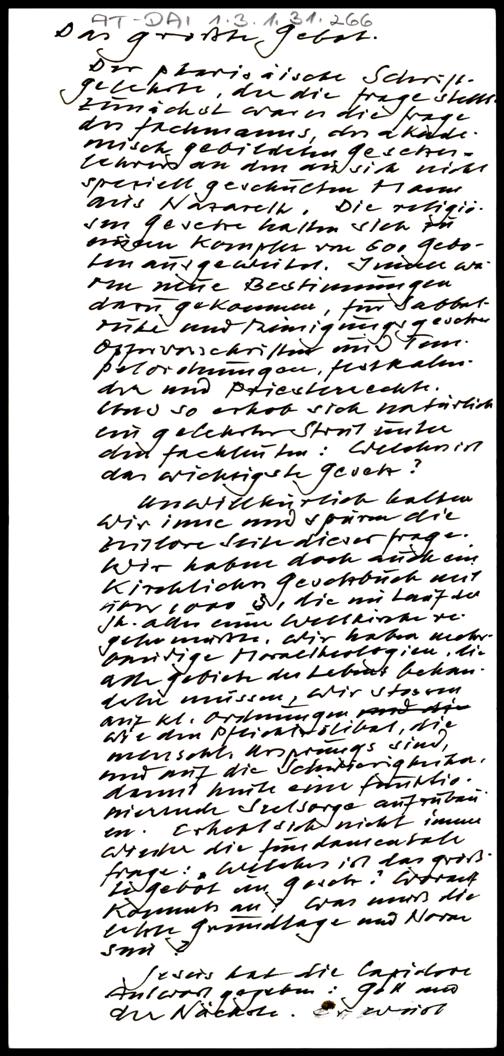 AT-DAI 1.3.1.31.266
Das größte Gebot.
Der pharisäische Schrift-
gelehrte, der die Frage stellt.
Zunächst war es die Frage
des Fachmanns, des akade-
misch gebildeten Gesetzes-
lehrers an den an sich nicht
speziell geschulten Mann
aus Nazareth. Die religiö-
sen Gesetze hatten sich zu
einem Komplex von 600 Gebo-
ten ausgeweitet. Immer wa-
ren neue Bestimmungen
dazu gekommen, für Sabbat-
ruhe und Reinigungsgesetze
Opfervorschriften und Tem-
pelordnungen, Festkalen-
der und Priesterrechte.
Und so erhob sich natürlich
ein gelehrter Streit unter
den Fachleuten: Welches ist
das wichtigste Gesetz?
Unwillkürlich halten
wir inne und spüren die
zeitlose Seite dieser Frage.
Wir haben doch auch ein
kirchliches Gesetzbuch mit
über 1000 §, die im Lauf der
Jh. alles eine Weltkirche re-
geln mußte. Wir haben mehr-
bändige Moraltheologien, die
alle Gebiete des Lebens behan-
deln müssen, wir stoßen
auf kl. Ordnungen und die
wie den Pflichtzölibat, die
menschl. Ursprungs sind,
und auf die Schwierigkeiten,
damit heute eine funktio-
nierende Seelsorge aufzubau-
en. Erhebt sich nicht immer
wieder die fundamentale
Frage: „Welches ist das größ-
te Gebot im Gesetz? Worauf
kommts an? Was muß die
letzte Grundlage und Norm
sein?
Jesus hat die lapidare
Antwort gegeben: Gott und
der Nächste. Er weist